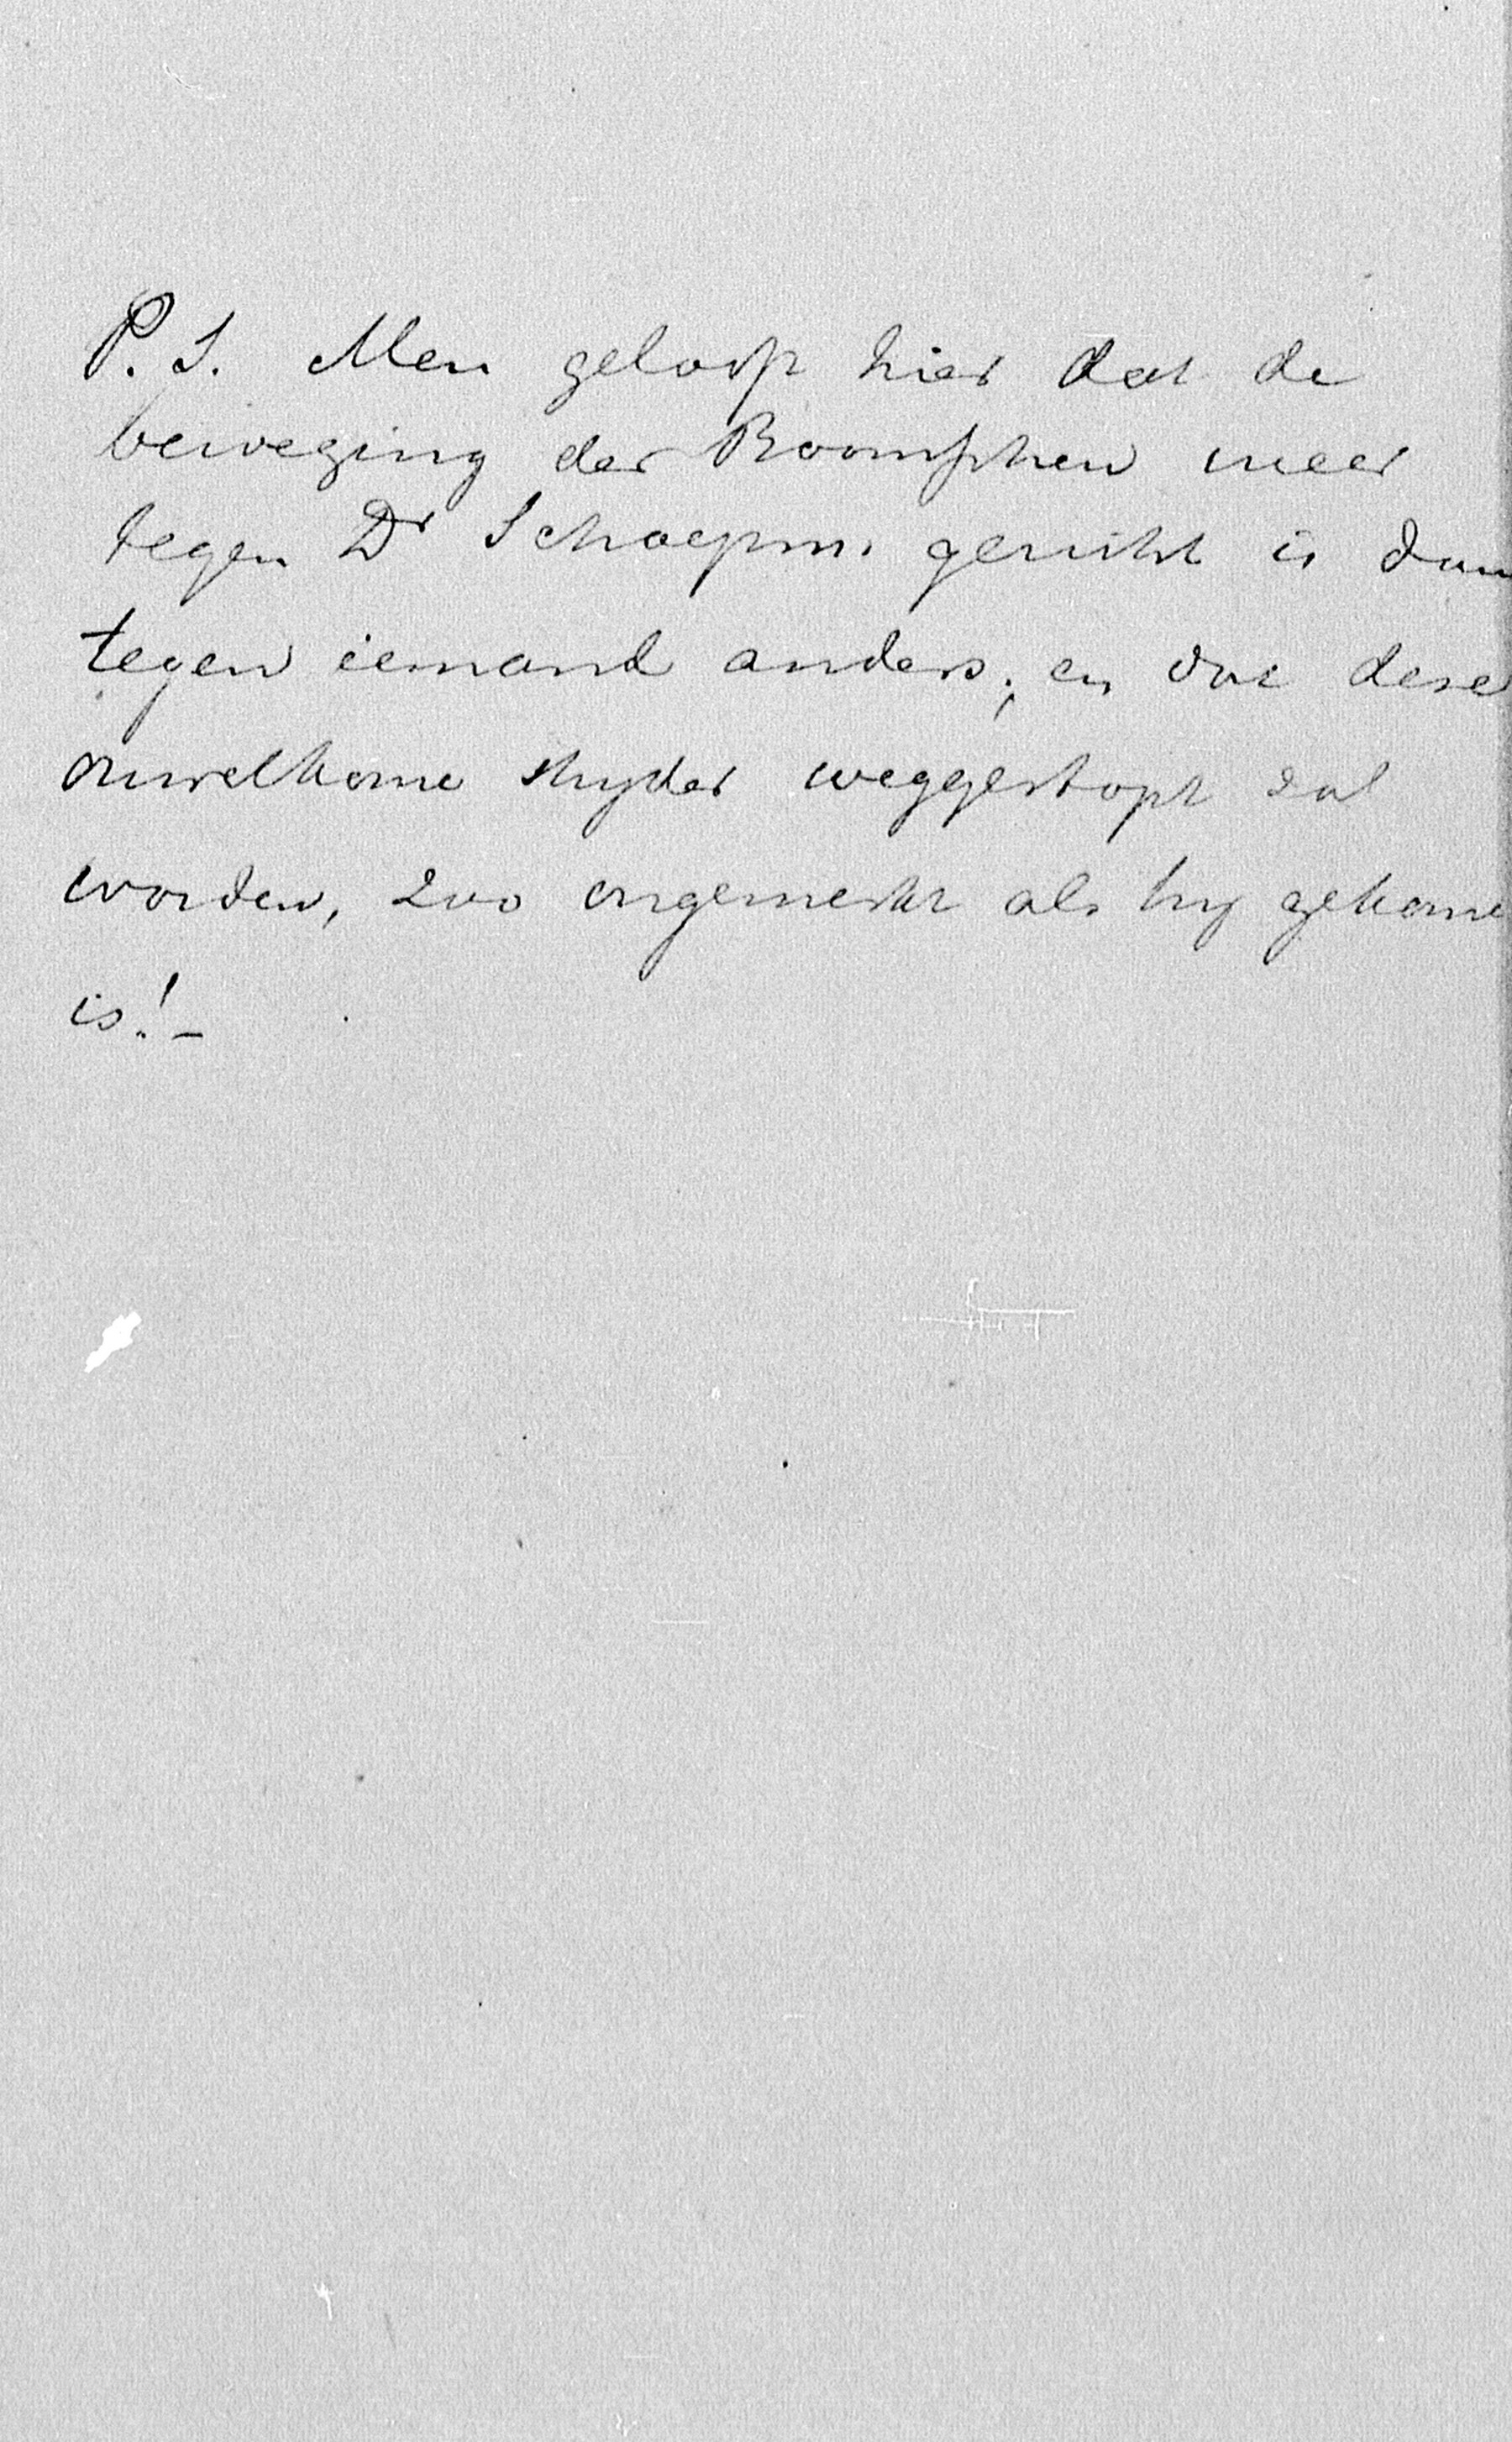 P.S. Men gelooft hier dat de
beweging der Roomschen meer
tegen Dr Schaepm. gericht is dan
tegen iemand anders; en dat deze
onwelkome stryder weggestopt zal
worden, zoo ongemerkt als hy gekome
is! -